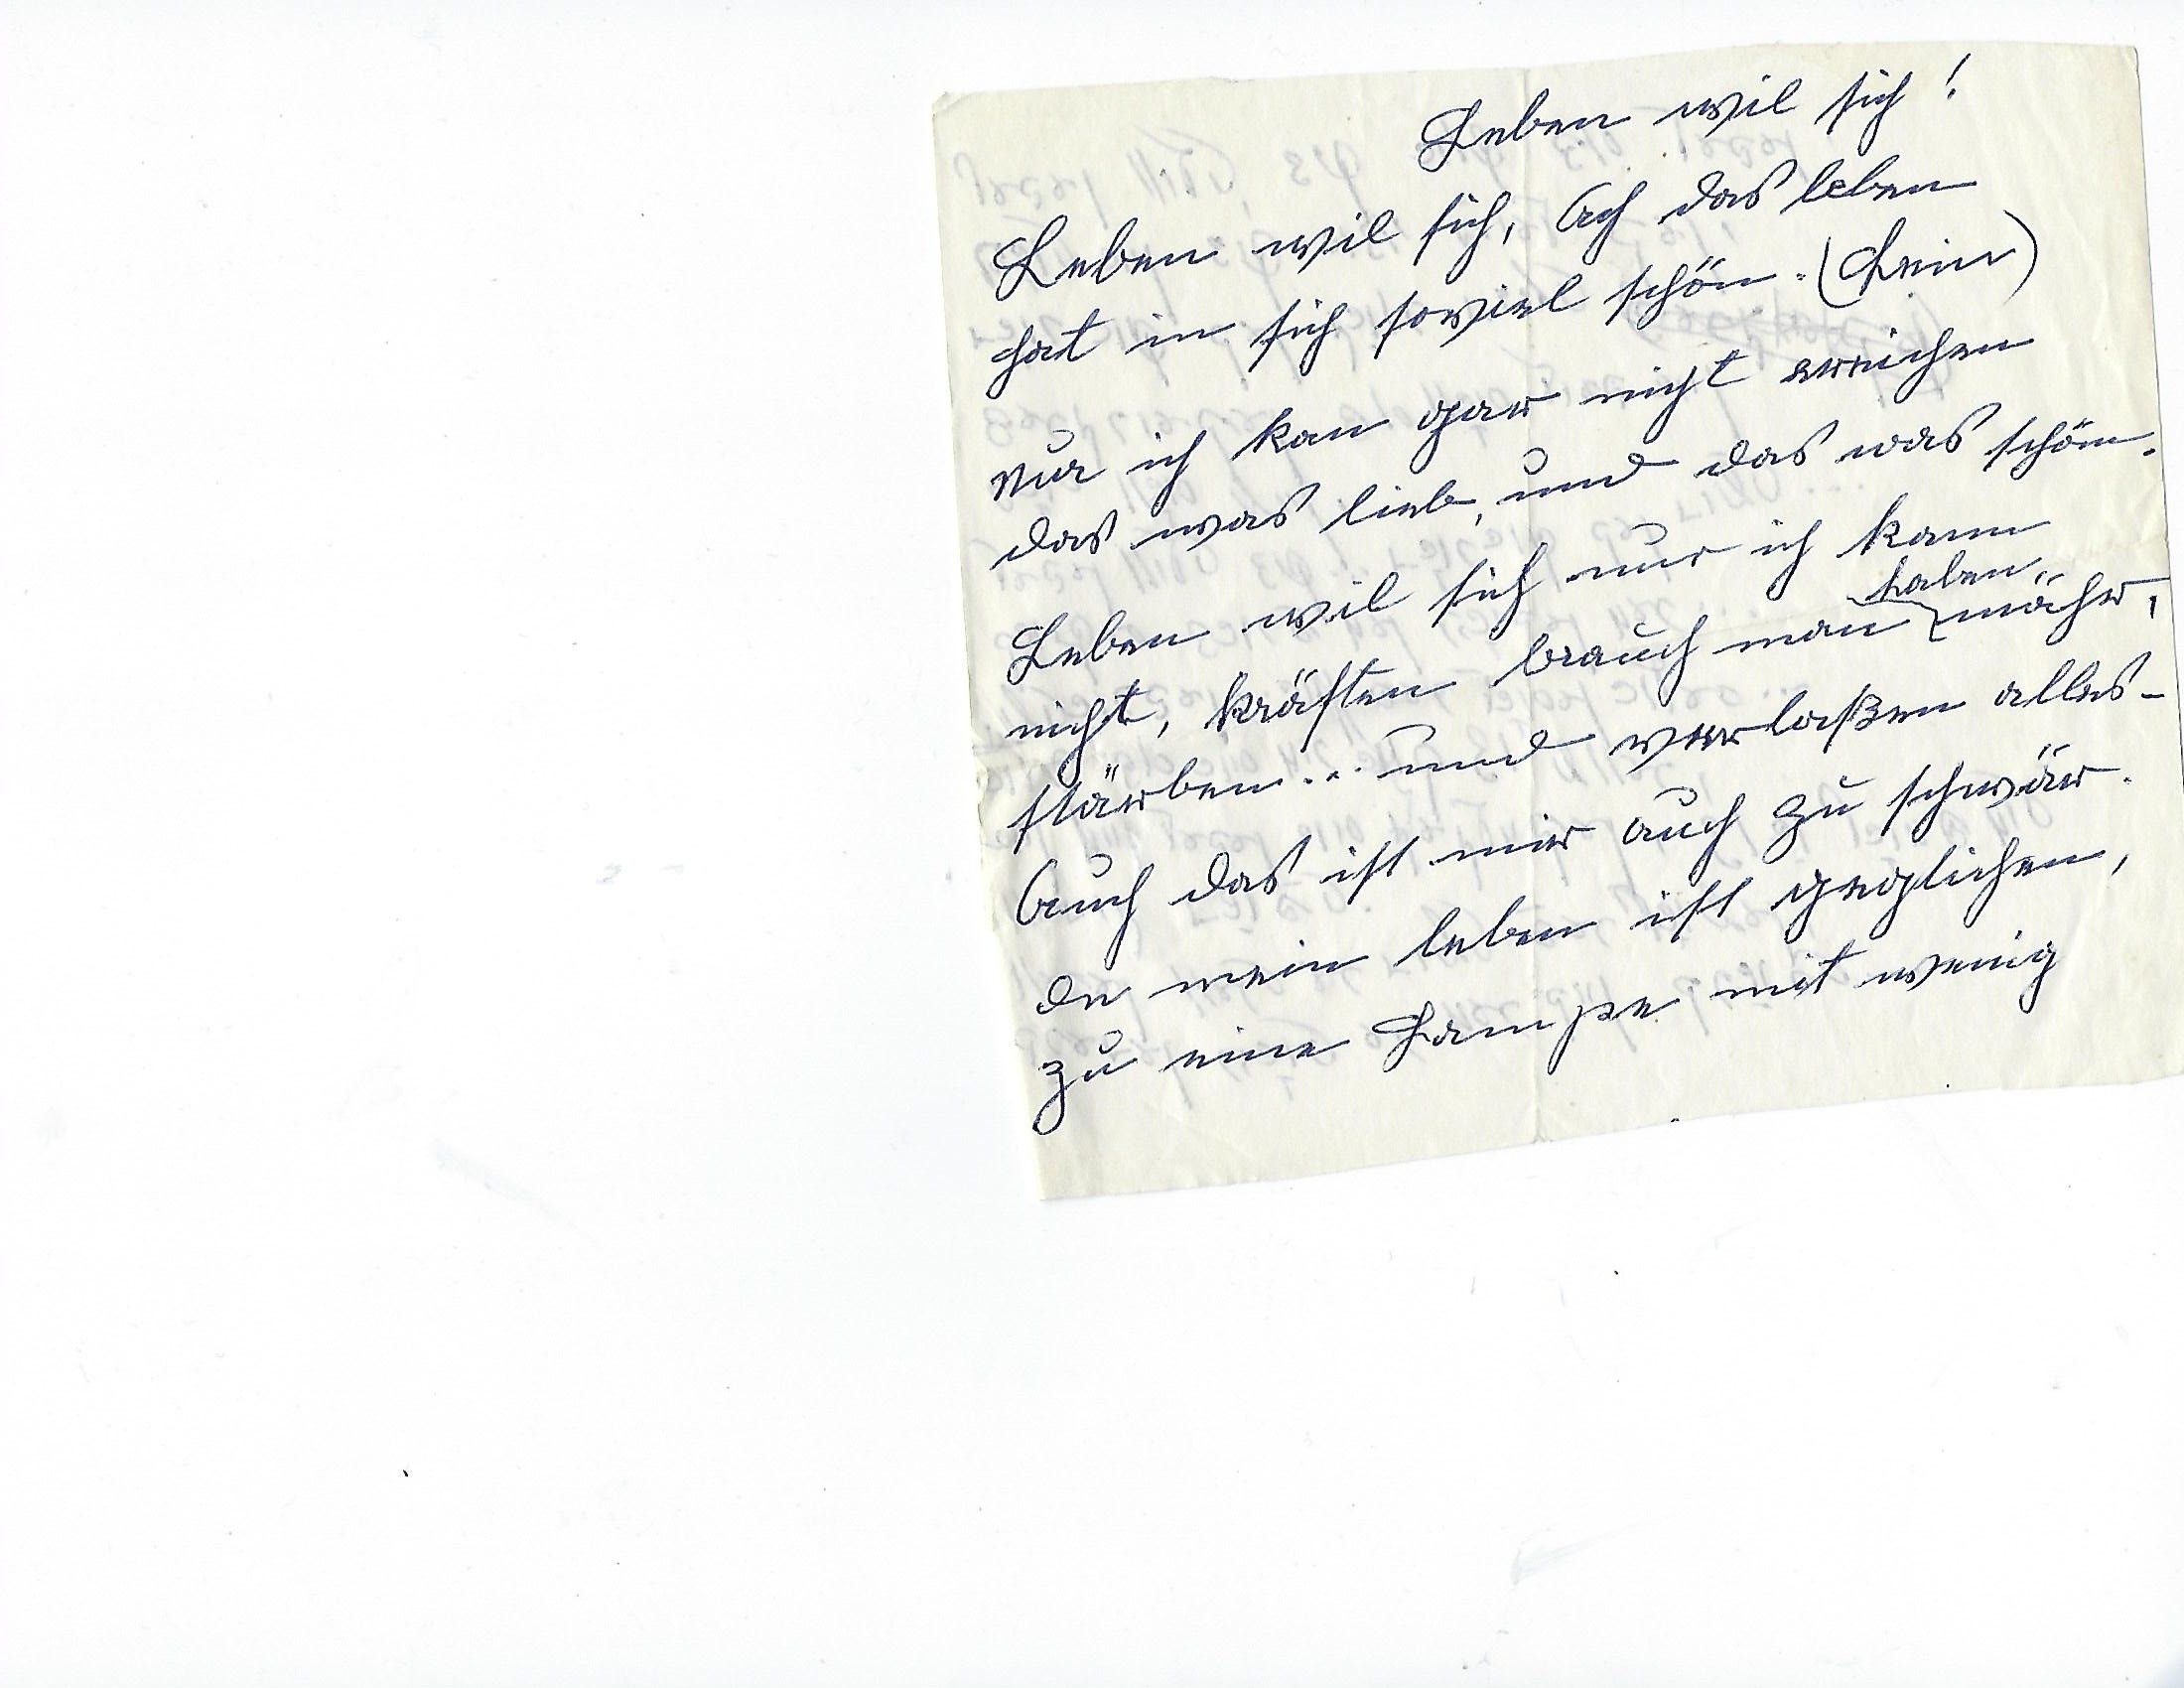 Leben wil sich!
Leben wil sich, Ach das leben
hat in sich soviel schön. (Chein)
nur ich kan gar nicht erreichen
das was lieb, und das was schön.
Leben wil sich nur ich kann
haben
nicht, kräften brauch man mäher,
stärben... und verlaßen alles-
Auch das ist mir auch zu schwär.
De mein leben ist geglichen,
zu eine Lampe mit wenig